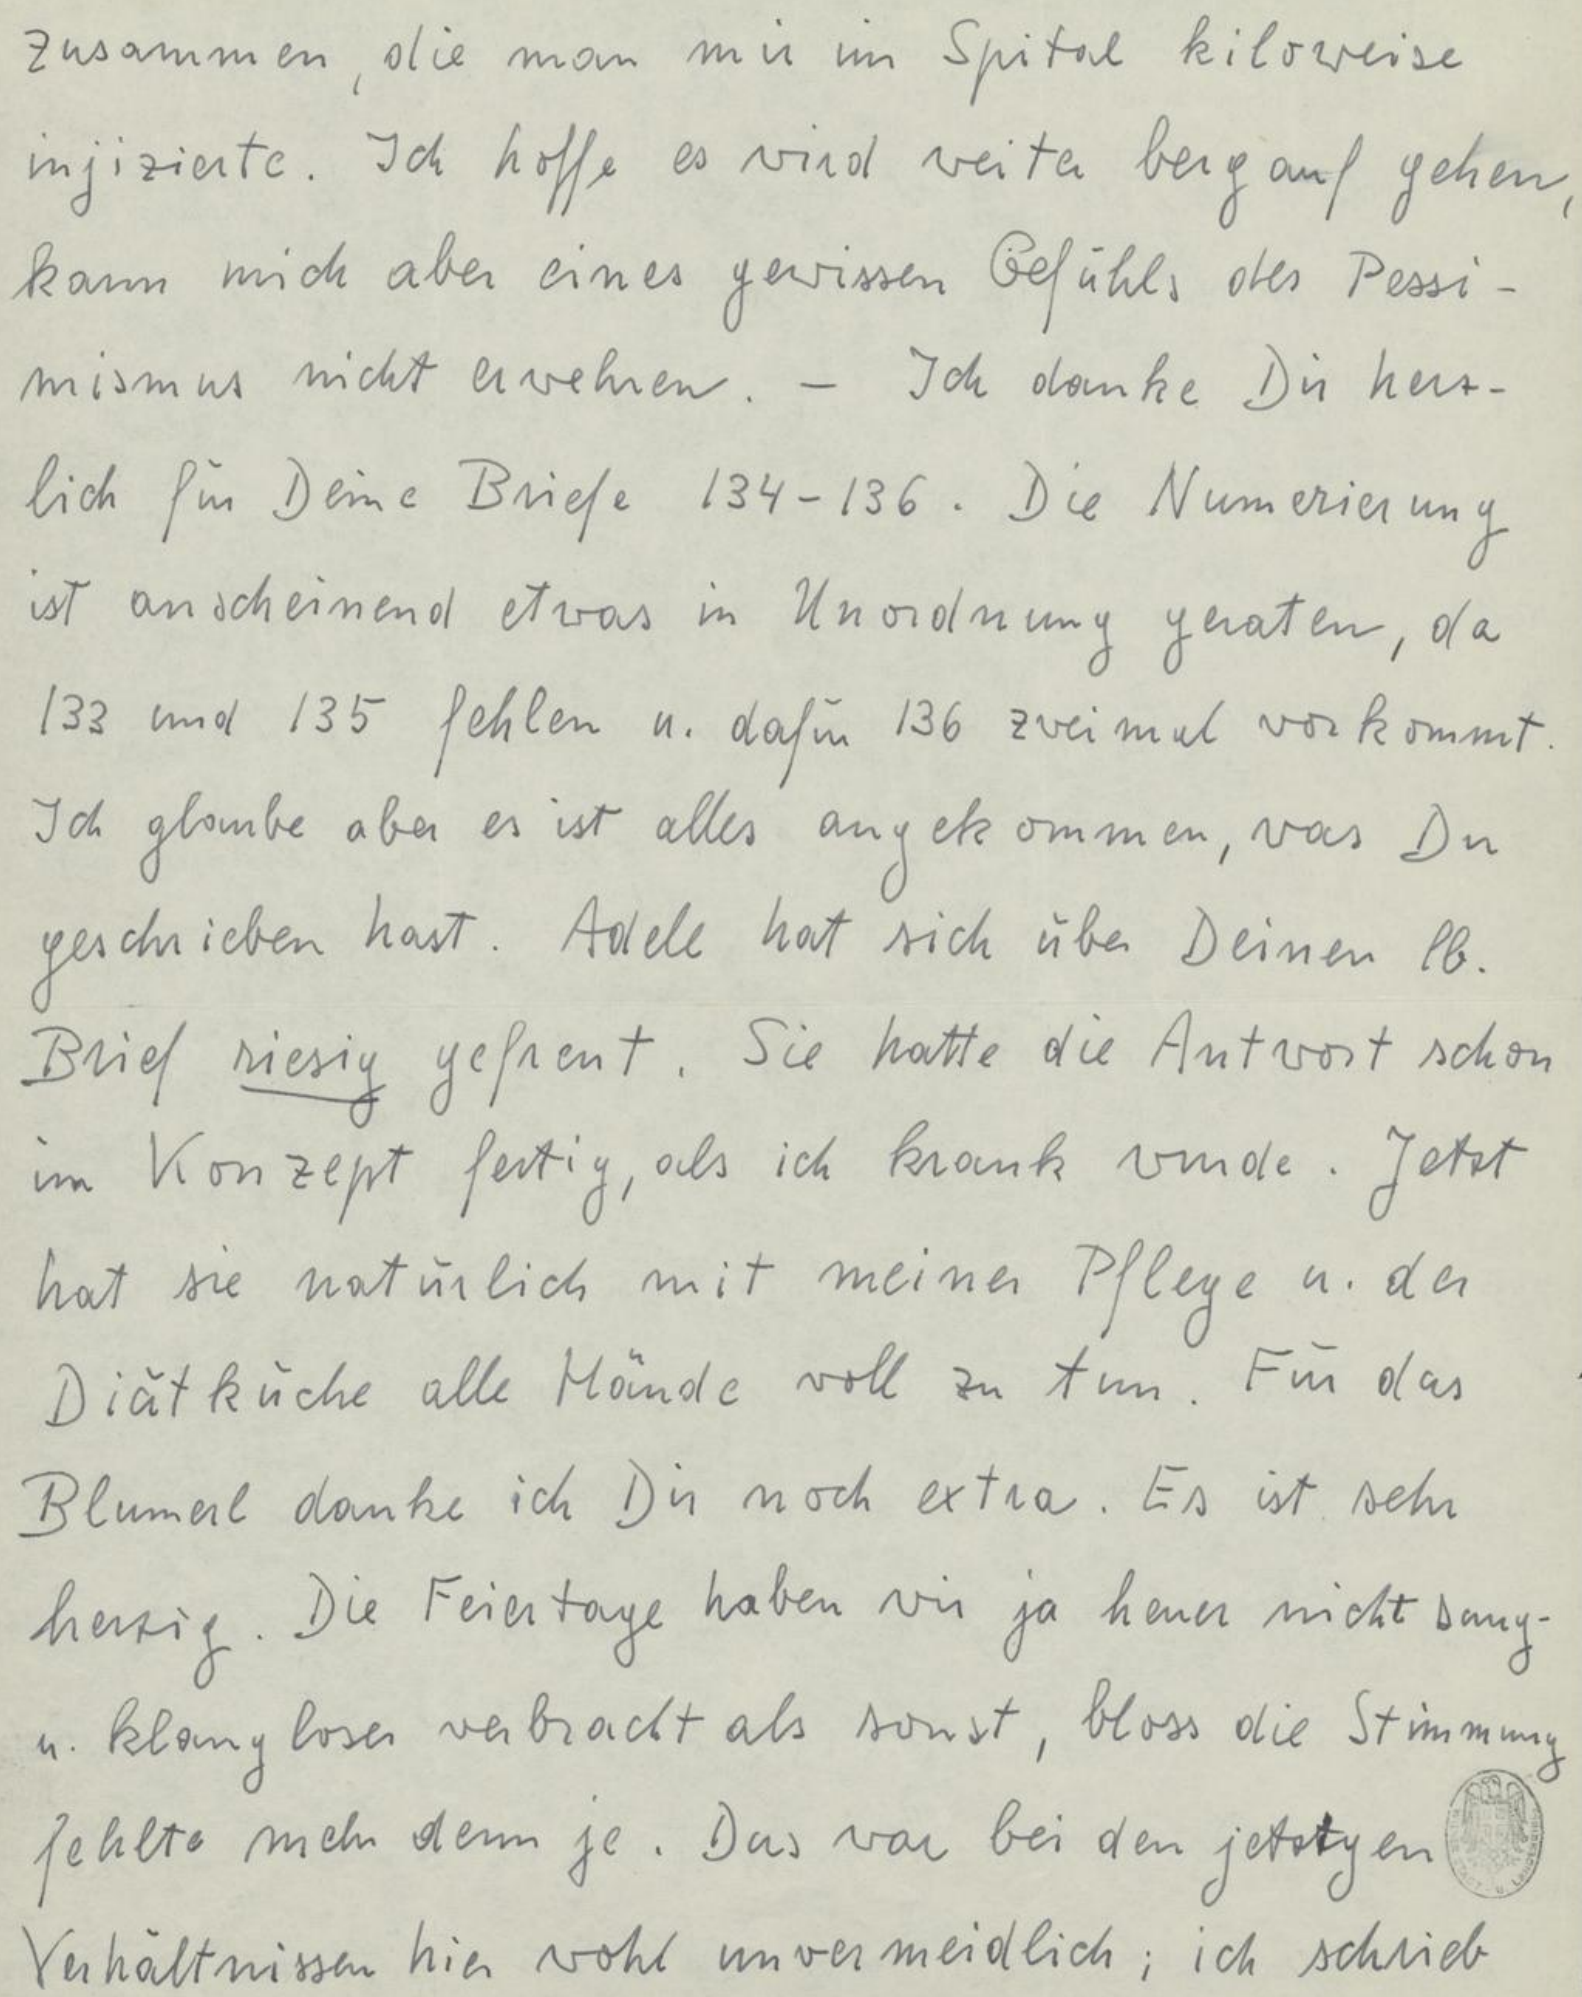 zusammen, die man mir im Spital kiloweise
injizierte. Ich hoffe es wird weiter bergauf gehen,
kann mich aber eines gewissen Gefühls des Pessi-
mismus nicht erwehren. – Ich danke Dir herz-
lich für Deine Briefe 134-136. Die Numerierung
ist anscheinend etwas in Unordnung geraten, da
133 und 135 fehlen u. dafür 136 zweimal vorkommt.
Ich glaube aber es ist alles angekommen, was Du
geschrieben hast. Adele hat sich über Deinen lb.
Brief riesig gefreut. Sie hatte die Antwort schon
im Konzept fertig, als ich krank wurde. Jetzt
hat sie natürlich mit meiner Pflege u. der
Diätküche alle Hände voll zu tun. Für das
Blumerl danke ich Dir noch extra. Es ist sehr
herzig. Die Feiertage haben wir ja heuer nicht sang-
u. klangloser verbracht als sonst, bloss die Stimmung
fehlte mehr denn je. Das war bei den jetztgen
Verhältnissen hier wohl unvermeidlich; ich schrieb